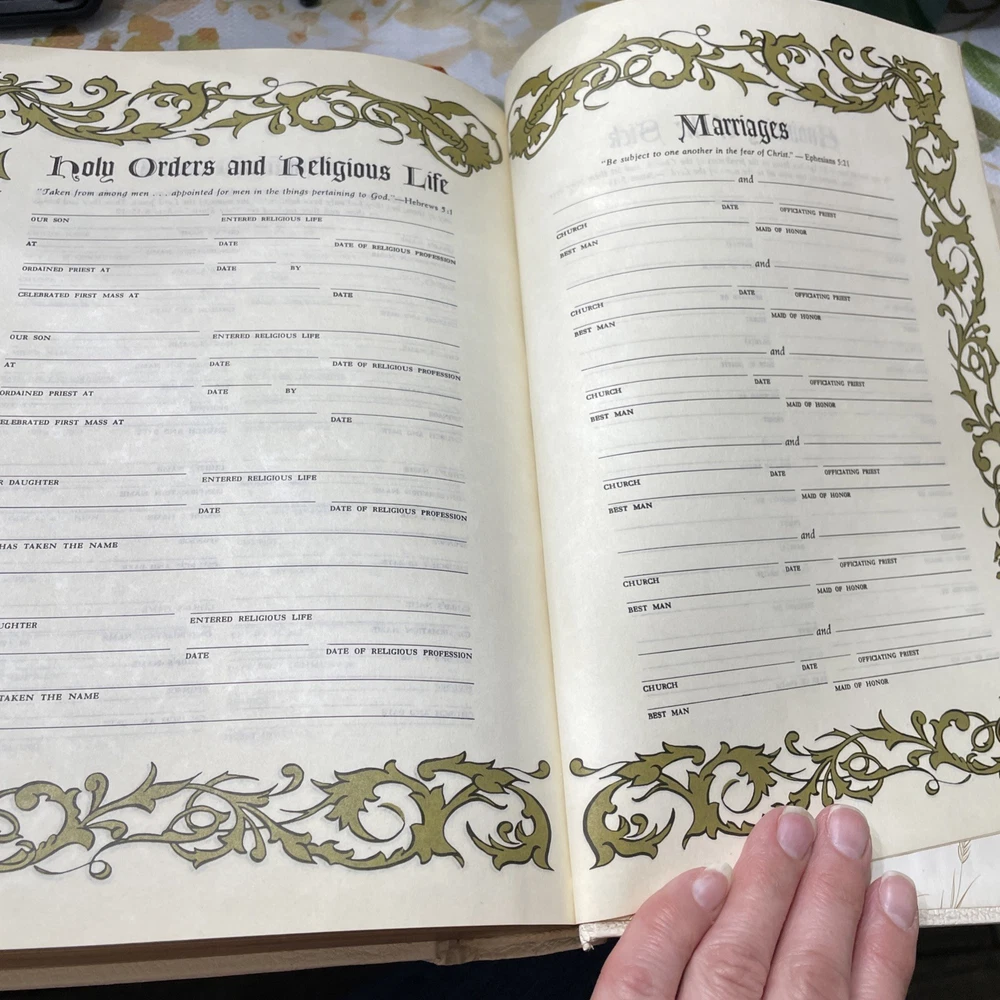 Holy Orders and Religious Life
"Taken from among men . . . appointed for men in the things pertaining to God."—Hebrews 5:1
OUR SON ENTERED RELIGIOUS LIFE
AT DATE DATE OF RELIGIOUS PROFESSION
ORDAINED PRIEST AT DATE BY
CELEBRATED FIRST MASS AT DATE
OUR SON ENTERED RELIGIOUS LIFE
AT DATE DATE OF RELIGIOUS PROFESSION
ORDAINED PRIEST AT DATE BY
CELEBRATED FIRST MASS AT DATE
DAUGHTER ENTERED RELIGIOUS LIFE
DATE DATE OF RELIGIOUS PROFESSION
HAS TAKEN THE NAME
ENTERED RELIGIOUS LIFE
DATE DATE OF RELIGIOUS PROFESSION
TAKEN THE NAME
Marriages
"Be subject to one another in the fear of Christ." — Ephesians 5:21
and
CHURCH DATE OFFICIATING PRIEST
BEST MAN MAID OF HONOR
and
CHURCH DATE OFFICIATING PRIEST
BEST MAN MAID OF HONOR
and
CHURCH DATE OFFICIATING PRIEST
BEST MAN MAID OF HONOR
and
CHURCH DATE OFFICIATING PRIEST
BEST MAN MAID OF HONOR
and
CHURCH DATE OFFICIATING PRIEST
BEST MAN MAID OF HONOR
and
CHURCH DATE OFFICIATING PRIEST
BEST MAN MAID OF HONOR